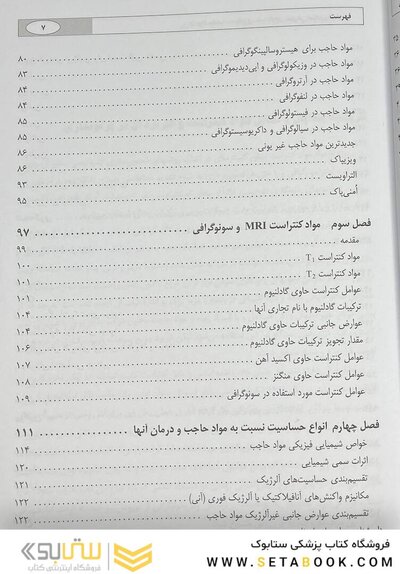 فهرست ۷
مواد حاجب برای هیستروسالپینگوگرافی ۸۰
مواد حاجب در وزیکولوگرافی و اپی‌دیدیموگرافی ۸۳
مواد حاجب در آرتروگرافی ۸۴
مواد حاجب در لنفوگرافی ۸۴
مواد حاجب در فیستولوگرافی ۸۵
مواد حاجب در سیالوگرافی و داکریوسیستوگرافی ۸۵
جدیدترین مواد حاجب غیر یونی ۸۶
ویزیپاک ۸۶
التراویست ۹۳
اُمنی‌پاک ۹۵
فصل سوم مواد کنتراست MRI و سونوگرافی ۹۷
مقدمه ۹۹
مواد کنتراست T₁ ۱۰۰
مواد کنتراست T₂ ۱۰۱
عوامل کنتراست حاوی گادلنیوم ۱۰۱
ترکیبات گادلنیوم با نام تجاری آنها ۱۰۴
عوارض جانبی ترکیبات حاوی گادلنیوم ۱۰۴
مقدار تجویز ترکیبات حاوی گادلنیوم ۱۰۶
عوامل کنتراست حاوی اکسید آهن ۱۰۷
عوامل کنتراست حاوی منگنز ۱۰۸
عوامل کنتراست مورد استفاده در سونوگرافی ۱۰۹
فصل چهارم انواع حساسیت نسبت به مواد حاجب و درمان آنها ۱۱۱
خواص شیمیایی فیزیکی مواد حاجب ۱۱۴
اثرات سمی شیمیایی ۱۲۰
تقسیم‌بندی حساسیت‌های آلرژیک ۱۲۱
مکانیزم واکنش‌های آنافیلاکتیک یا آلرژیک فوری (آنی) ۱۲۲
تقسیم‌بندی عوارض جانبی غیرآلرژیک مواد حاجب ۱۲۲
فروشگاه کتاب پزشکی ستابوک
WWW.SETABOOK.COM
ستابوک
فروشگاه اینترنتی کتاب